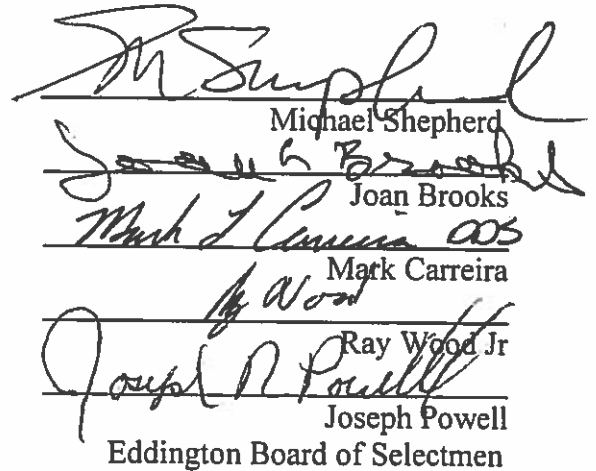 M Shepherd
Michael Shepherd
Joan Brooks
Joan Brooks
Mark L Carreira
Mark Carreira
Ray Wood
Ray Wood Jr
Joseph R Powell
Joseph Powell
Eddington Board of Selectmen